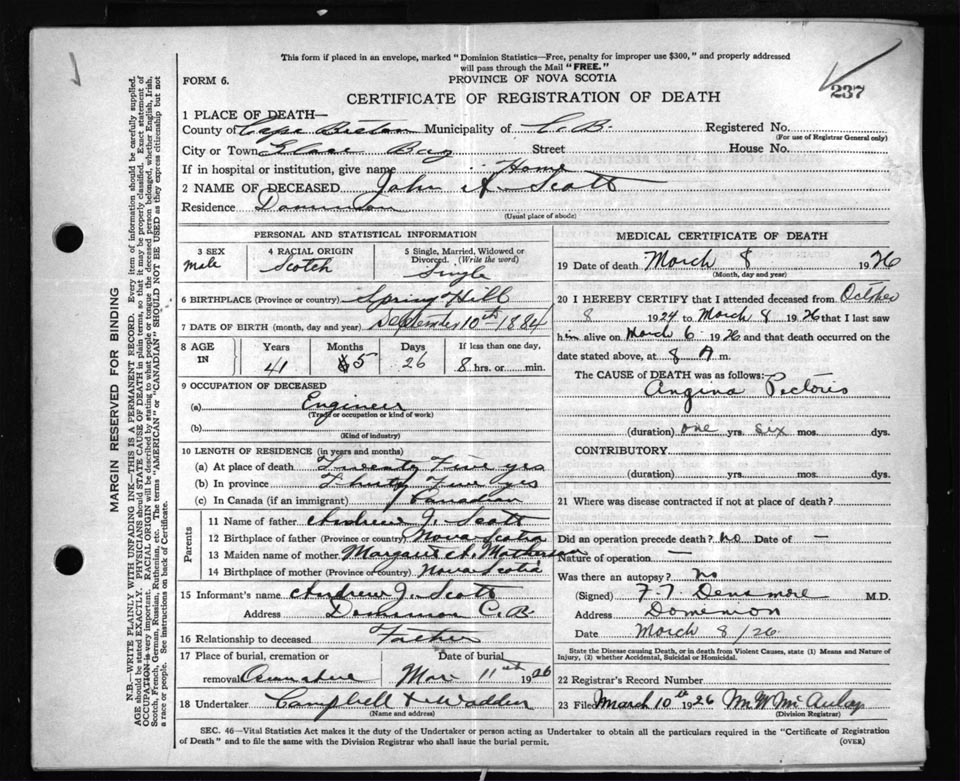 This form if placed in an envelope, marked "Dominion Statistics—Free, penalty for improper use $300," and properly addressed
will pass through the Mail "FREE."
FORM 6. PROVINCE OF NOVA SCOTIA
237
CERTIFICATE OF REGISTRATION OF DEATH
1 PLACE OF DEATH—
County of Cape Breton Municipality of C.B. Registered No.
(For use of Registrar General only)
City or Town Glace Bay Street House No.
If in hospital or institution, give name Home
2 NAME OF DECEASED John A. Scott
Residence Dominion
(Usual place of abode)
PERSONAL AND STATISTICAL INFORMATION
3 SEX male
4 RACIAL ORIGIN Scotch
5 Single, Married, Widowed or Divorced. (Write the word) Single
6 BIRTHPLACE (Province or country) Spring Hill
7 DATE OF BIRTH (month, day and year) September 10th 1884
8 AGE IN Years Months Days If less than one day,
41 5 26 8 hrs. or min.
9 OCCUPATION OF DECEASED
(a) Engineer
(Trade or occupation or kind of work)
(b)
(Kind of industry)
10 LENGTH OF RESIDENCE (in years and months)
(a) At place of death Twenty Five yrs
(b) In province Thirty Five yrs
(c) In Canada (if an immigrant) Canadian
Parents
11 Name of father Andrew J. Scott
12 Birthplace of father (Province or country) Nova Scotia
13 Maiden name of mother Margaret Matherson
14 Birthplace of mother (Province or country) Nova Scotia
15 Informant's name Andrew J. Scott
Address Dominion C.B.
16 Relationship to deceased Father
17 Place of burial, cremation or Date of burial
removal Mar 11th 1926
18 Undertaker Campbell & Wadden
(Name and address)
MEDICAL CERTIFICATE OF DEATH
19 Date of death March 8 1926
(Month, day and year)
20 I HEREBY CERTIFY that I attended deceased from October
8 1924 to March 8 1926 that I last saw
him alive on March 6 1926 and that death occurred on the
date stated above, at 8 A m.
The CAUSE of DEATH was as follows:
Angina Pectoris
(duration) one yrs. six mos. dys.
CONTRIBUTORY
(duration) yrs. mos. dys.
21 Where was disease contracted if not at place of death?
Did an operation precede death? no Date of —
Nature of operation —
Was there an autopsy? no
(Signed) Densmore M.D.
Address Dominion
Date March 8/26
State the Disease causing Death, or in death from Violent Causes, state (1) Means and Nature of
Injury, (2) whether Accidental, Suicidal or Homicidal.
22 Registrar's Record Number
23 Filed March 10th 1926 McAulay
(Division Registrar)
SEC. 46—Vital Statistics Act makes it the duty of the Undertaker or person acting as Undertaker to obtain all the particulars required in the "Certificate of Registration
of Death" and to file the same with the Division Registrar who shall issue the burial permit. (OVER)
MARGIN RESERVED FOR BINDING
N.B.—WRITE PLAINLY WITH UNFADING INK—THIS IS A PERMANENT RECORD. Every item of information should be carefully supplied.
AGE should be stated EXACTLY. PHYSICIANS should STATE CAUSE OF DEATH in plain terms, so that it may be properly classified. Exact statement of
OCCUPATION is very important. RACIAL ORIGIN will be described by stating to what people or tongue the deceased person belonged, whether English, Irish,
Scotch, French, German, Russian, Ruthenian, etc. The terms "AMERICAN" or "CANADIAN" SHOULD NOT BE USED as they express citizenship but not
a race or people. See instructions on back of Certificate.